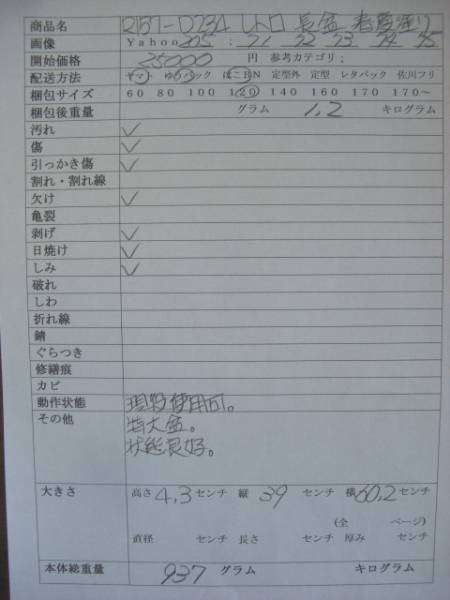 商品名 R157-D234 レトロ 長盆 春慶塗り
画像 Yahoo 205 : 21 22 23 24 25
開始価格 25000 円 参考カテゴリ;
配送方法 ヤマト ゆうパック はこBN 定型外 定型 レタパック 佐川フリ
梱包サイズ 60 80 100 120 140 160 170 170~
梱包後重量 グラム 1,2 キログラム
汚れ ✓
傷 ✓
引っかき傷 ✓
割れ・割れ線
欠け ✓
亀裂
剥げ ✓
日焼け ✓
しみ ✓
破れ
しわ
折れ線
錆
ぐらつき
修繕痕
カビ
動作状態 現役使用可。
その他 特大盆。
状態良好。
大きさ 高さ 4,3 センチ 縦 39 センチ 横 60,2 センチ
(全 ページ)
直径 センチ 長さ センチ 厚み センチ
本体総重量 937 グラム キログラム